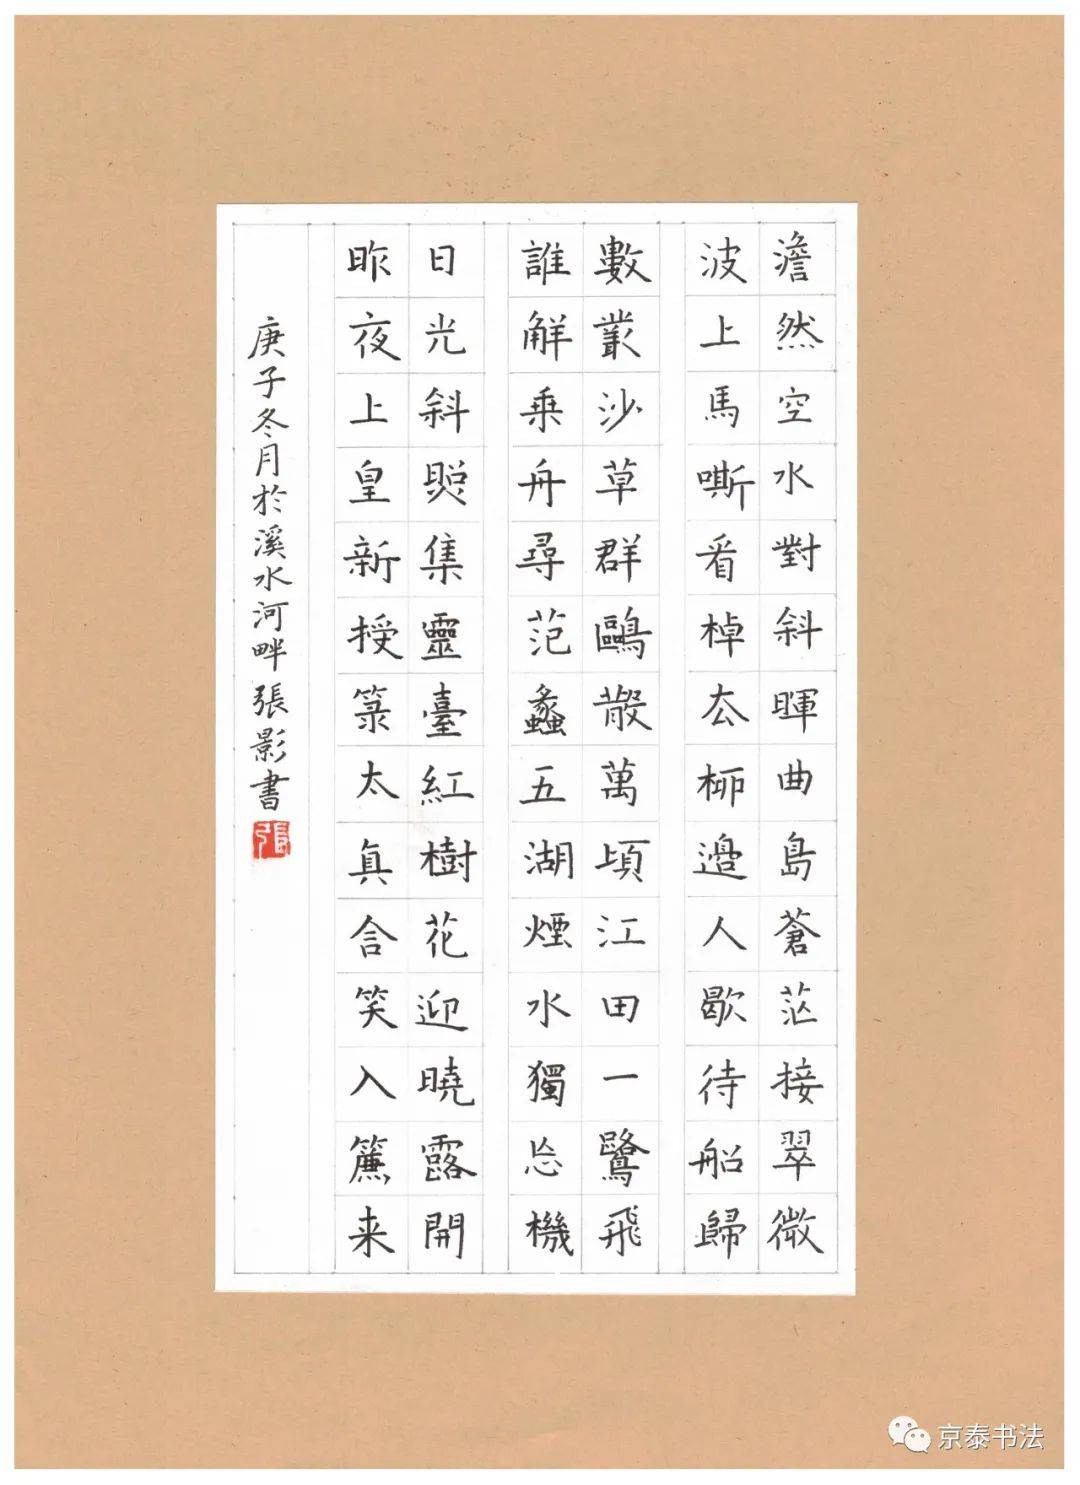 澹然空水對斜暉曲島蒼茫接翠微
波上馬嘶看棹去柳邊人歇待船歸
數叢沙草群鷗散萬頃江田一鷺飛
誰解乗舟尋范蠡五湖煙水獨忘機
日光斜照集靈臺紅樹花迎曉露開
昨夜上皇新授箓太真含笑入簾来
庚子冬月於溪水河畔張影書
張
京泰书法